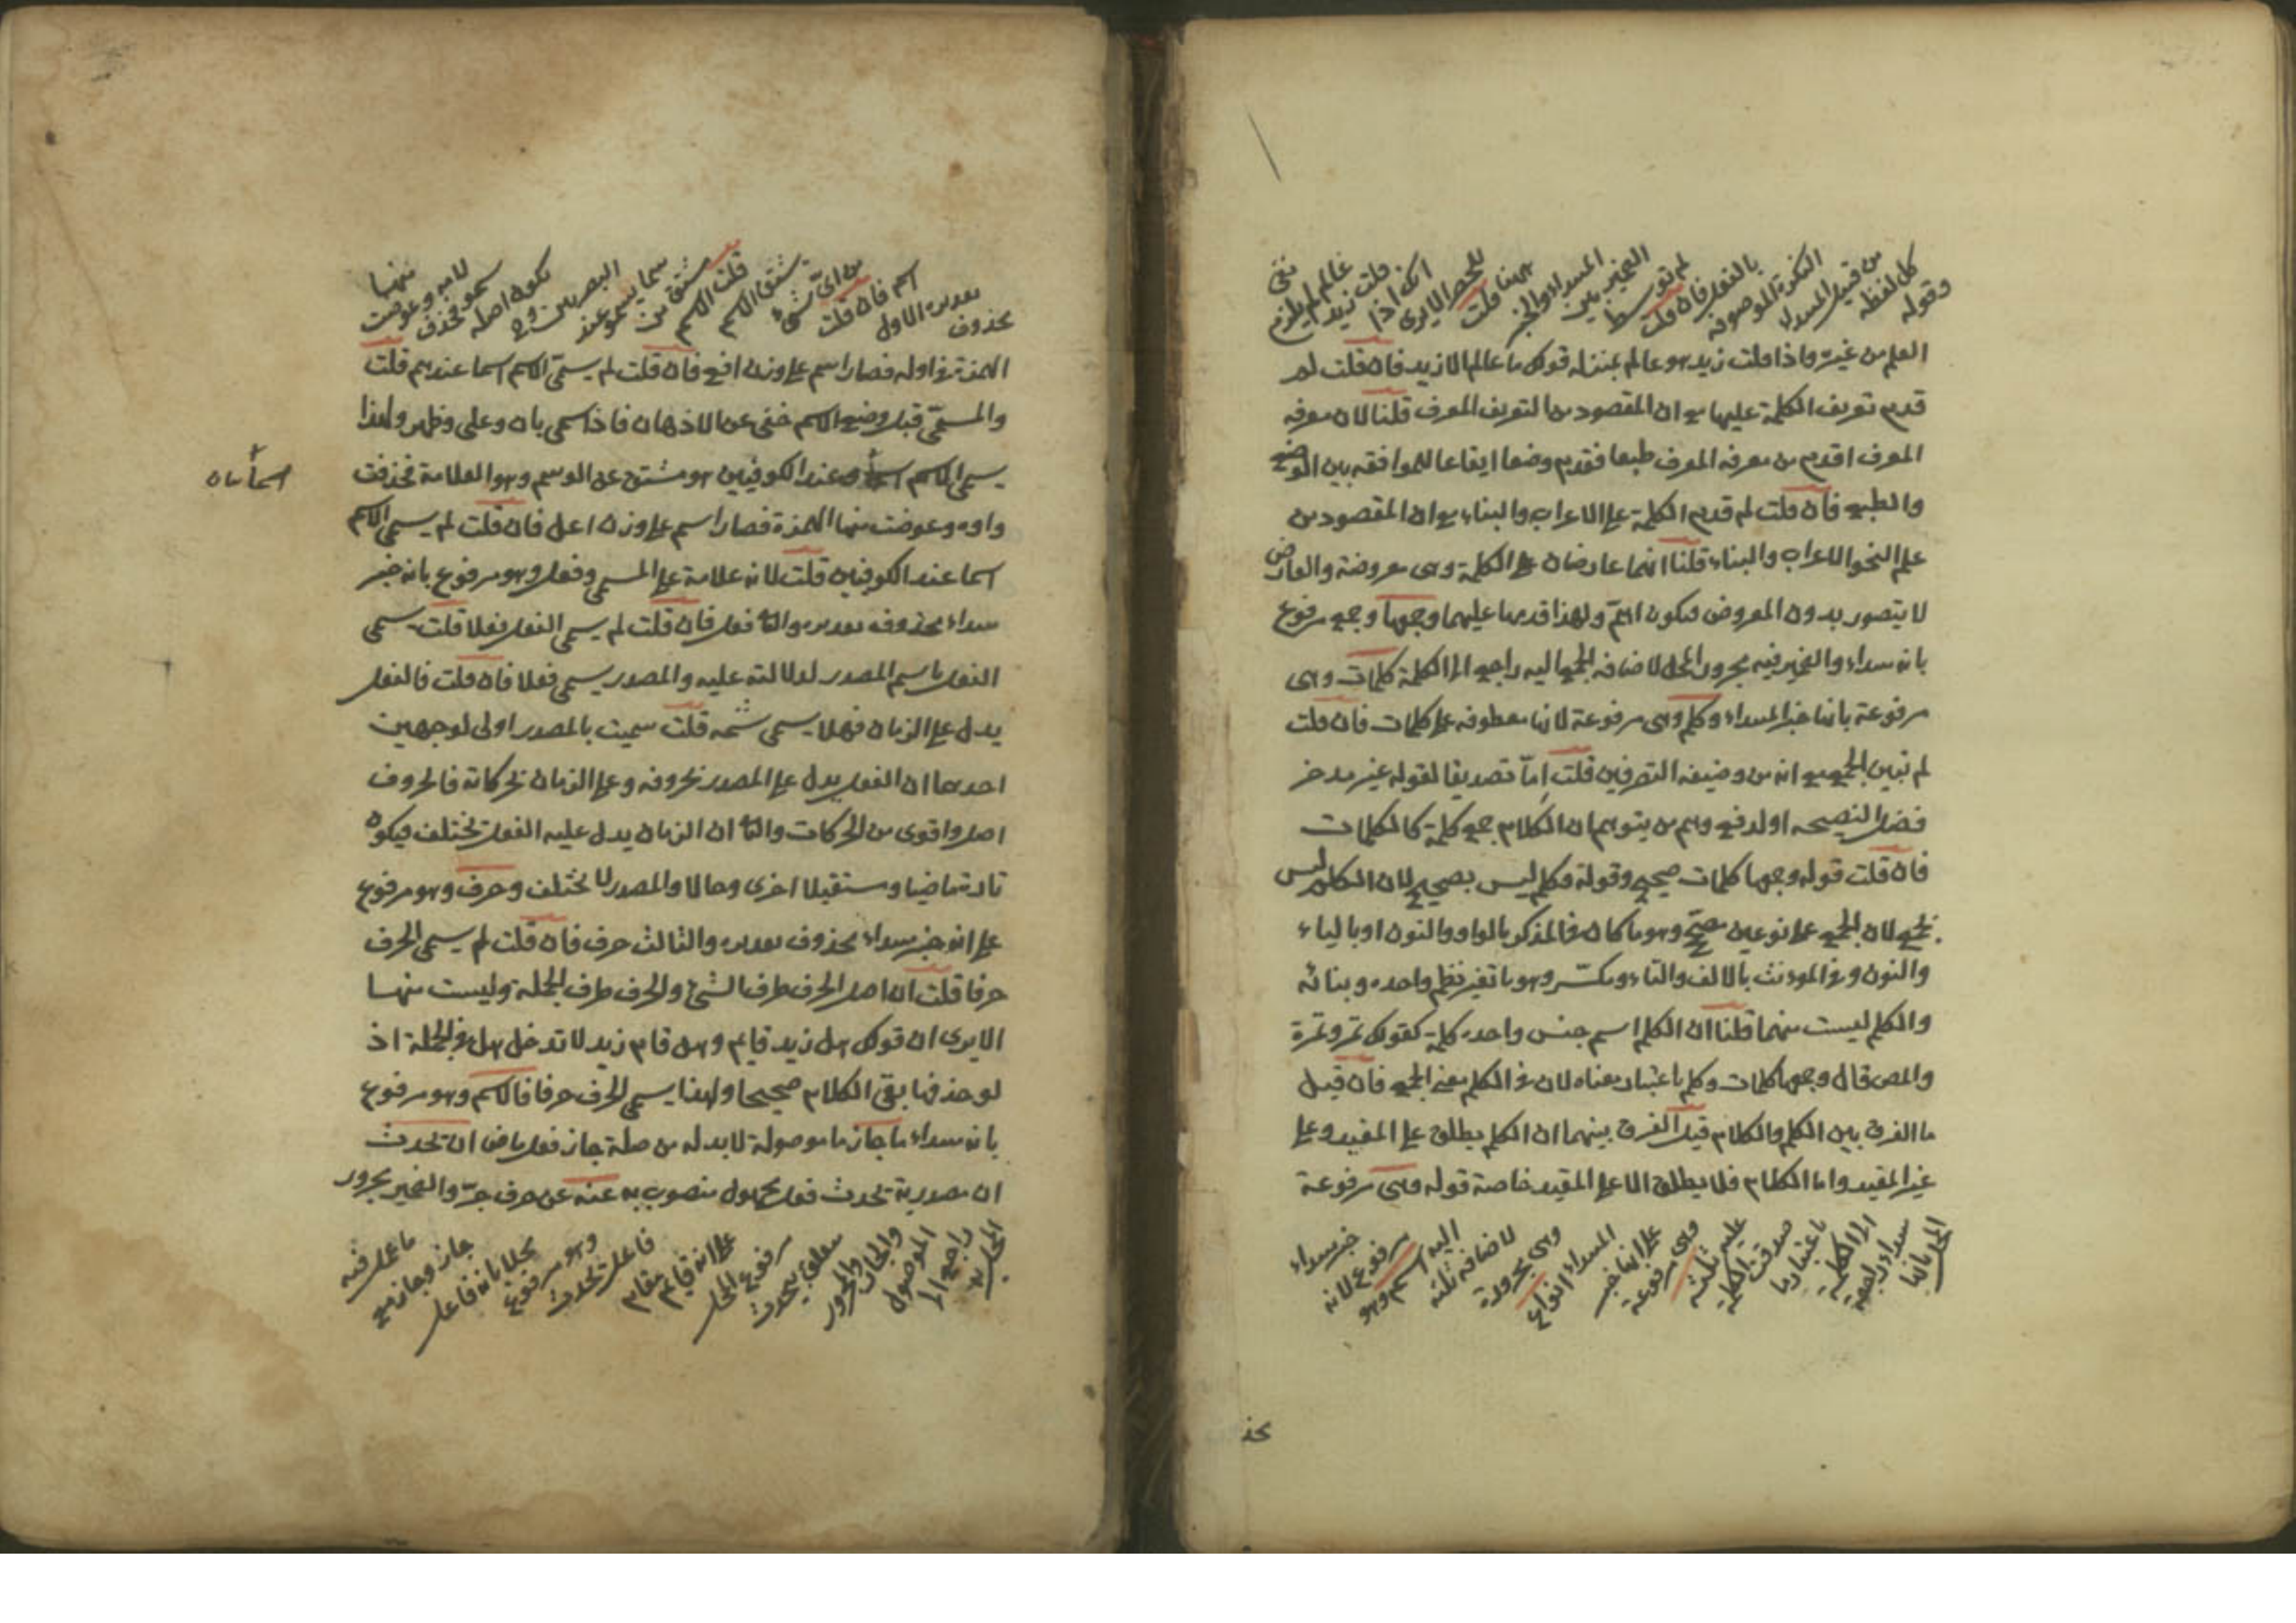 وقوله كل لفظة من قبيل المبتدأ النكرة الموصوفة بالفعل فان قلت لم توسط الضمير بين المبتداء والخبر ههنا قلت للحصر الا يرى انك اذا قلت زيد عالم لم يلزم نفى
العلم من غيره واذا قلت زيد هو عالم بمنزلة قولك ما عالم الا زيد فان قلت لم
قدم تعريف الكلمة عليها مع ان المقصود من التعريف المعرف قلنا لان معرفة
المعرف اقدم من معرفة المعرف طبعا فقدم وضعا ايقاعا للموافقة بين الوضع
والطبع فان قلت لم قدم الكلمة على الاعراب والبناء مع ان المقصود من
علم النحو الاعراب والبناء قلنا انهما عارضان على الكلمة وهى معروضة والعارض
لا يتصور بدون المعروض فيكون اهم ولهذا قدمها عليهما وجمعها وجمع مرفوع
بانه مبتداء والضمير فيه مجرور المحل لاضافة الجمع اليه راجع الى الكلمة كلمات وهى
مرفوعة بانها خبر المبتداء وكلم وهى مرفوعة لانها معطوفة على كلمات فان قلت
لم تبين الجمع مع انه من وضيفة التصرفين قلت اما تصديقا لقوله غير مدخر
فضل النصيحة او لدفع وهم من يتوهم ان الكلام جمع كلمة كالكلمات
فان قلت قوله وجمعها كلمات صحيح وقوله وكلم ليس بصحيح لان الكلم ليس
بجمع لان الجمع على نوعين مصحح وهو ما كان فى المذكر بالواو والنون او بالياء
والنون وفى المؤنث بالالف والتاء ومكسر وهو ما تغير نظم واحده وبنائه
والكلم ليست منهما قلنا ان الكلم اسم جنس واحده كلمة كقولك تمر وتمرة
والمص قال وجمعها كلمات وكلم باعتبار معناه لان فى الكلم معنى الجمع فان قيل
ما الفرق بين الكلم والكلام قيل الفرق بينهما ان الكلم يطلق على المفيد وعلى
غير المفيد واما الكلام فلا يطلق الا على المفيد خاصة قوله وهى مرفوعة
المحل بانها مبتداء راجعة الى الكلمة باعتبار ما صدقت الكلمة عليه ثلثة وهى مرفوعة على انها خبر المبتداء انواع وهى مجرورة لاضافة ثلثة اليه اسم وهو مرفوع لانه خبر مبتداء
محذ
محذوف تقديره الاول اسم فان قلت من اى شىء يشتق الاسم قلت الاسم مشتق من سما يسمو عند البصريين وهو يكون اصله سمو فحذف لامه وعوضت منها
الهمزة فى اوله فصار اسم على وزن افع فان قلت لم يسمى الاسم اسما عندهم قلت
والمسمى قبل وضع الاسم خفى عن الاذهان فاذا سمى بان وعلى وظهر ولهذا
يسمى الاسم وعند الكوفيين هو مشتق عن الوسم وهو العلامة فحذفت
واوه وعوضت منها الهمزة فصار اسم على وزن اعل فان قلت لم يسمى الاسم
اسما عند الكوفيين قلت لانه علامة على المسمى وفعل وهو مرفوع بانه خبر
مبتداء محذوف تقديره والثانى فعل فان قلت لم يسمى الفعل فعلا قلت يسمى
الفعل باسم المصدر لدلالته عليه والمصدر يسمى فعلا فان قلت فالفعل
يدل على الزمان فهلا يسمى قلت سميت بالمصدر اولى لوجهين
احدهما ان الفعل يدل على المصدر بحروفه وعلى الزمان بحركاته فالحروف
اصل واقوى من الحركات والثانى ان الزمان يدل عليه الفعل تختلف فيكون
تارة ماضيا ومستقبلا اخرى وحالا والمصدر لا تختلف وحرف وهو مرفوع
على انه خبر مبتداء محذوف تقديره والثالث حرف فان قلت لم يسمى الحرف
حرفا قلت ان اصل الحرف طرف الشىء والحرف طرف الجملة وليست منها
الا يرى ان قولك هل زيد قايم وهل قام زيد لا تدخل هل فى الجملة اذ
لو حذفها بقى الكلام صحيحا ولهذا يسمى الحرف حرفا فالاسم وهو مرفوع
بانه مبتداء ما جاز ما موصولة لا بد له من صلة جاز فعل ماض ان تحدث
ان مصدرية تحدث فعل مجهول منصوب به عنه عن حرف جر والضمير مجرور
المحل به راجع الى الموصول والجار والمجرور متعلق بتحدث مرفوع المحل على انه قايم مقام فاعل تحدث وهو مرفوع محلا بانه فاعل جاز وجاز مع ما عمل فيه